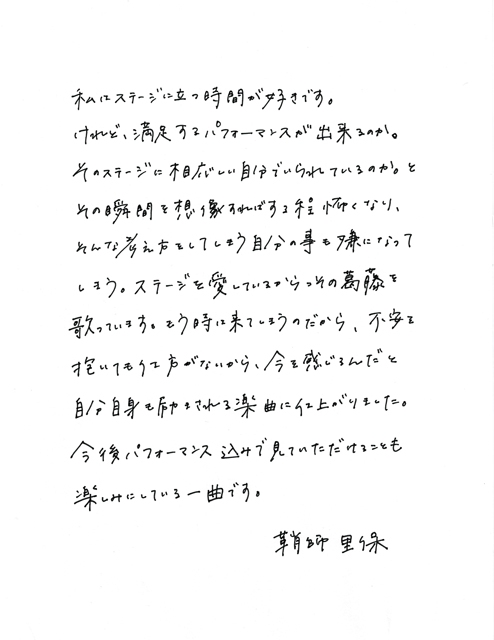 私はステージに立つ時間が好きです。
けれど、満足するパフォーマンスが出来るのか。
そのステージに相応しい自分でいられているのか。と
その瞬間を想像すればする程怖くなり、
そんな考え方をしてしまう自分の事も嫌になって
しまう。ステージを愛しているからっその葛藤を
歌っています。もう時は来てしまうのだから、不安を
抱いても仕方がないから、今を感じるんだと
自分自身も励まされる楽曲に仕上がりました。
今後パフォーマンス込みで見ていただけることも
楽しみにしている一曲です。
鞘師 里保